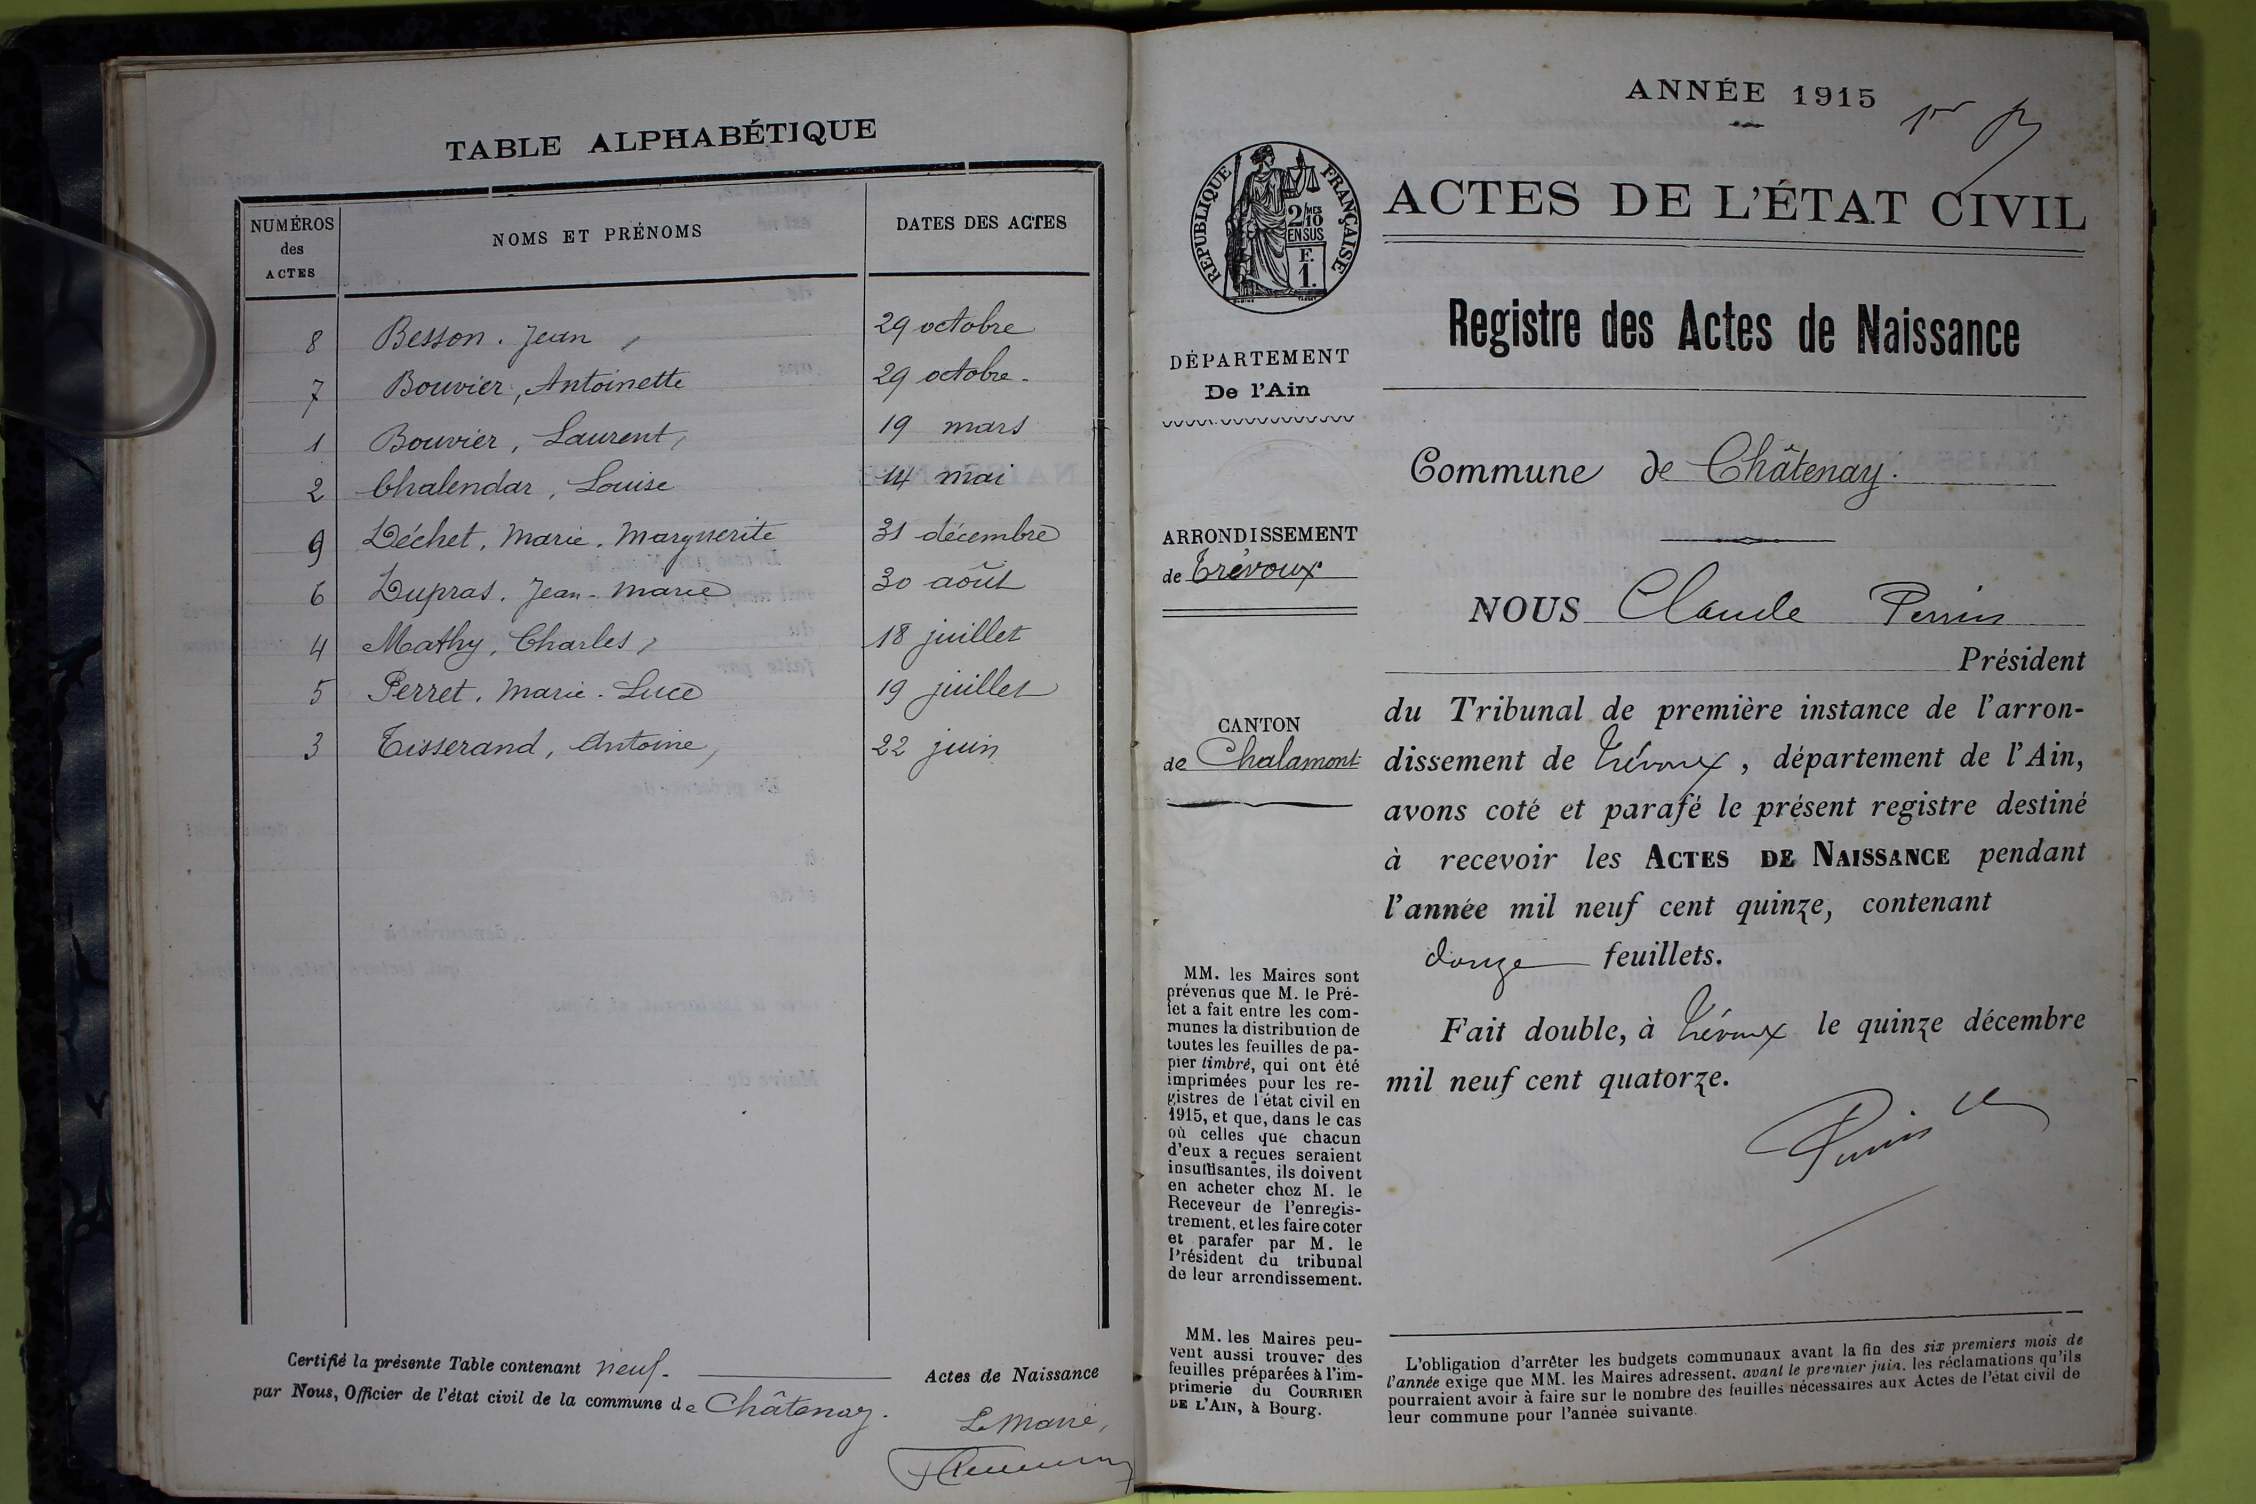 TABLE ALPHABÉTIQUE
NUMÉROS des ACTES
NOMS ET PRÉNOMS
DATES DES ACTES
8 Besson. Jean 29 octobre
7 Bouvier, Antoinette 29 octobre.
1 Bouvier, Laurent, 19 mars
2 Chalendar, Louise 14 mai
9 Déchet. Marie. Marguerite 31 décembre
6 Dupras. Jean-Marie 30 août
4 Mathy, Charles, 18 juillet
5 Perret. Marie-Luce 19 juillet
3 Tisserand, Antoine, 22 juin
Certifié la présente Table contenant neuf. Actes de Naissance
par Nous, Officier de l'état civil de la commune de Châtenay.
Le Maire,
ANNÉE 1915
1er
RÉPUBLIQUE FRANÇAISE
2/10 MES
EN SUS
F.
1.
DÉPARTEMENT
De l'Ain
ARRONDISSEMENT
de Trévoux
CANTON
de Chalamont
MM. les Maires sont
prévenus que M. le Pré-
fet a fait entre les com-
munes la distribution de
toutes les feuilles de pa-
pier timbré, qui ont été
imprimées pour les re-
gistres de l'état civil en
1915, et que, dans le cas
où celles que chacun
d'eux a reçues seraient
insuffisantes, ils doivent
en acheter chez M. le
Receveur de l'enregis-
trement, et les faire coter
et parafer par M. le
Président du tribunal
de leur arrondissement.
MM. les Maires peu-
vent aussi trouver des
feuilles préparées à l'im-
primerie du COURRIER
DE L'AIN, à Bourg.
ACTES DE L'ÉTAT CIVIL
Registre des Actes de Naissance
Commune de Châtenay.
NOUS Claude Perrin
Président
du Tribunal de première instance de l'arron-
dissement de Trévoux, département de l'Ain,
avons coté et parafé le présent registre destiné
à recevoir les ACTES DE NAISSANCE pendant
l'année mil neuf cent quinze, contenant
douze feuillets.
Fait double, à Trévoux le quinze décembre
mil neuf cent quatorze.
Perrin
L'obligation d'arrêter les budgets communaux avant la fin des six premiers mois de
l'année exige que MM. les Maires adressent, avant le premier juin, les réclamations qu'ils
pourraient avoir à faire sur le nombre des feuilles nécessaires aux Actes de l'état civil de
leur commune pour l'année suivante.